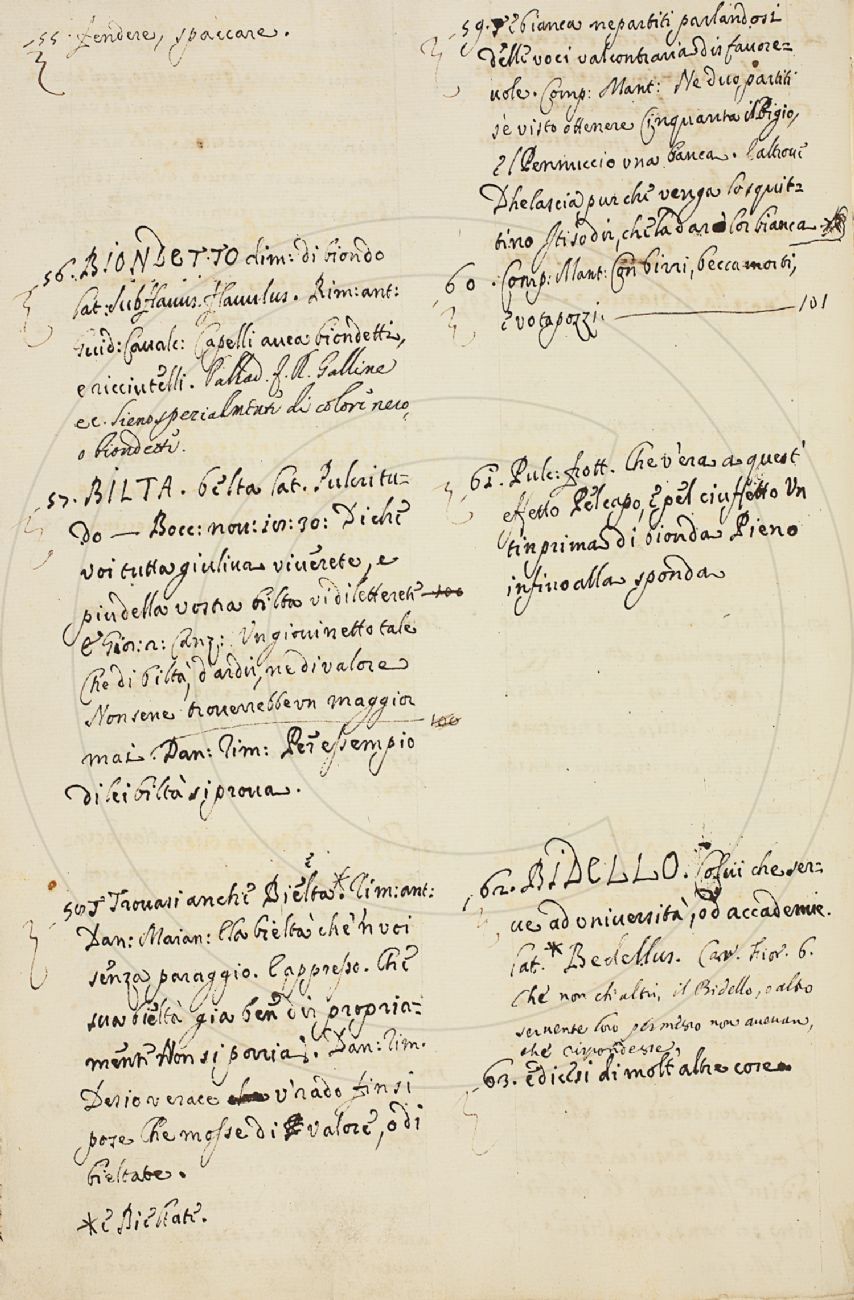 55. fendere, spaccare.
56. BIONDETTO dim: di biondo
lat: subflavus. flavulus. Rim: ant:
Guid: Cavalc: Capelli avea biondetti,
e ricciutelli. Pallad. f. R. Galline
ec. sieno spezialmente di colore nero,
o biondette.
57. BILTA. belta lat. Pulcritu=
do — Bocc: nov: 101: 30: Di che
voi tutta giuliva viverete, e
piu della vostra bilta vi diletterete 100
E Gior: 2: Canz: Un giovinetto tale
Che di biltà, d'ardir, ne di valore
Non sene troverrebbe vn maggior 100
mai. Dan: rim: Per essempio
di lei biltà si prova.
58. Trovasi anche Bielta* è. rim: ant:
Dan: Maian: Ela bieltà che'n voi
senza paraggio. E appresso. Che
sua bieltà gia ben dir propria=
mente Non si porria. Dan: rim.
Desio verace v'rado fin si
pose Che mosse di valore, o di
bieltate.
*è Bieltate.
59. bianca ne partiti parlandosi
delle voci val contraria disfavore=
vole. Comp: Mant: Ne duo partiti
s'è visto ottenere Cinquanta il Bigio,
E'l Pennuccio una bianca. E altrove
D' helascia pur che venga lo squit=
tino Sti sodir, che la darà lor bianca
60. Comp: Mant: Con birri, beccamorti,
e votapozzi. 101
61. Pulc: frott. Che v'era a quest'
effetto Pel capo, e pel ciuffetto Un
tinprima di bionda Pieno
infino alla sponda
62. BIDELLO. Colui che ser=
ve ad università, od accademie.
lat.* Bedellus. Car. Fior. 6.
Che non ch'altri, il Bidello, o altro
servente loro permesso non avevan,
che rispondesse.
63. è diciesi di molt altre cose